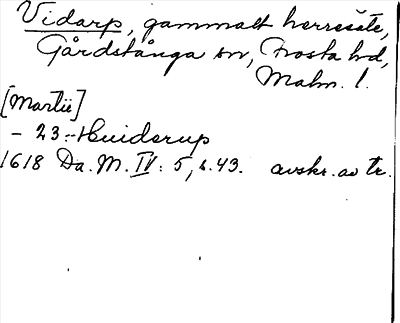 Vidarp, gammalt herresäte,
Gårdstånga sn, Frosta hd,
Malm. l.
[Martii]
- 23:- Huiderup
1618 Da. M. IV: 5, s. 43. avskr. av tr.